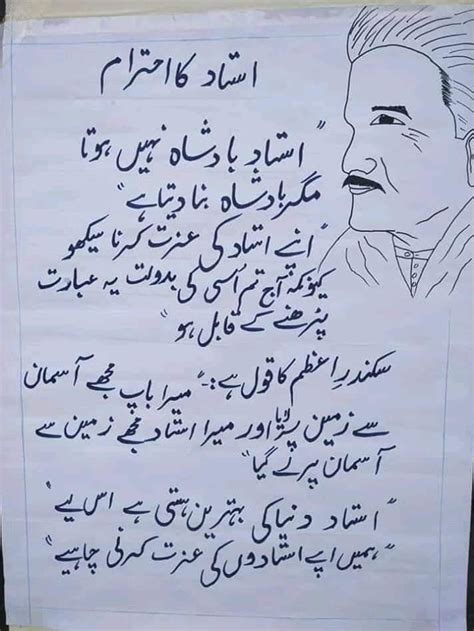 استاد کا احترام
"استاد بادشاہ نہیں ہوتا
مگر بادشاہ بنا دیتا ہے"
"اپنے استاد کی عزت کرنا سیکھو
کیونکہ آج تم اُسی کی بدولت یہ عبارت
پڑھنے کے قابل ہو"
سکندرِ اعظم کا قول ہے:۔ "میرا باپ مجھے آسمان
سے زمین پر لایا اور میرا استاد مجھے زمین سے
آسمان پر لے گیا"
"استاد دنیا کی بہترین ہستی ہے اس لیے"
"ہمیں اپنے استادوں کی عزت کرنی چاہیے"